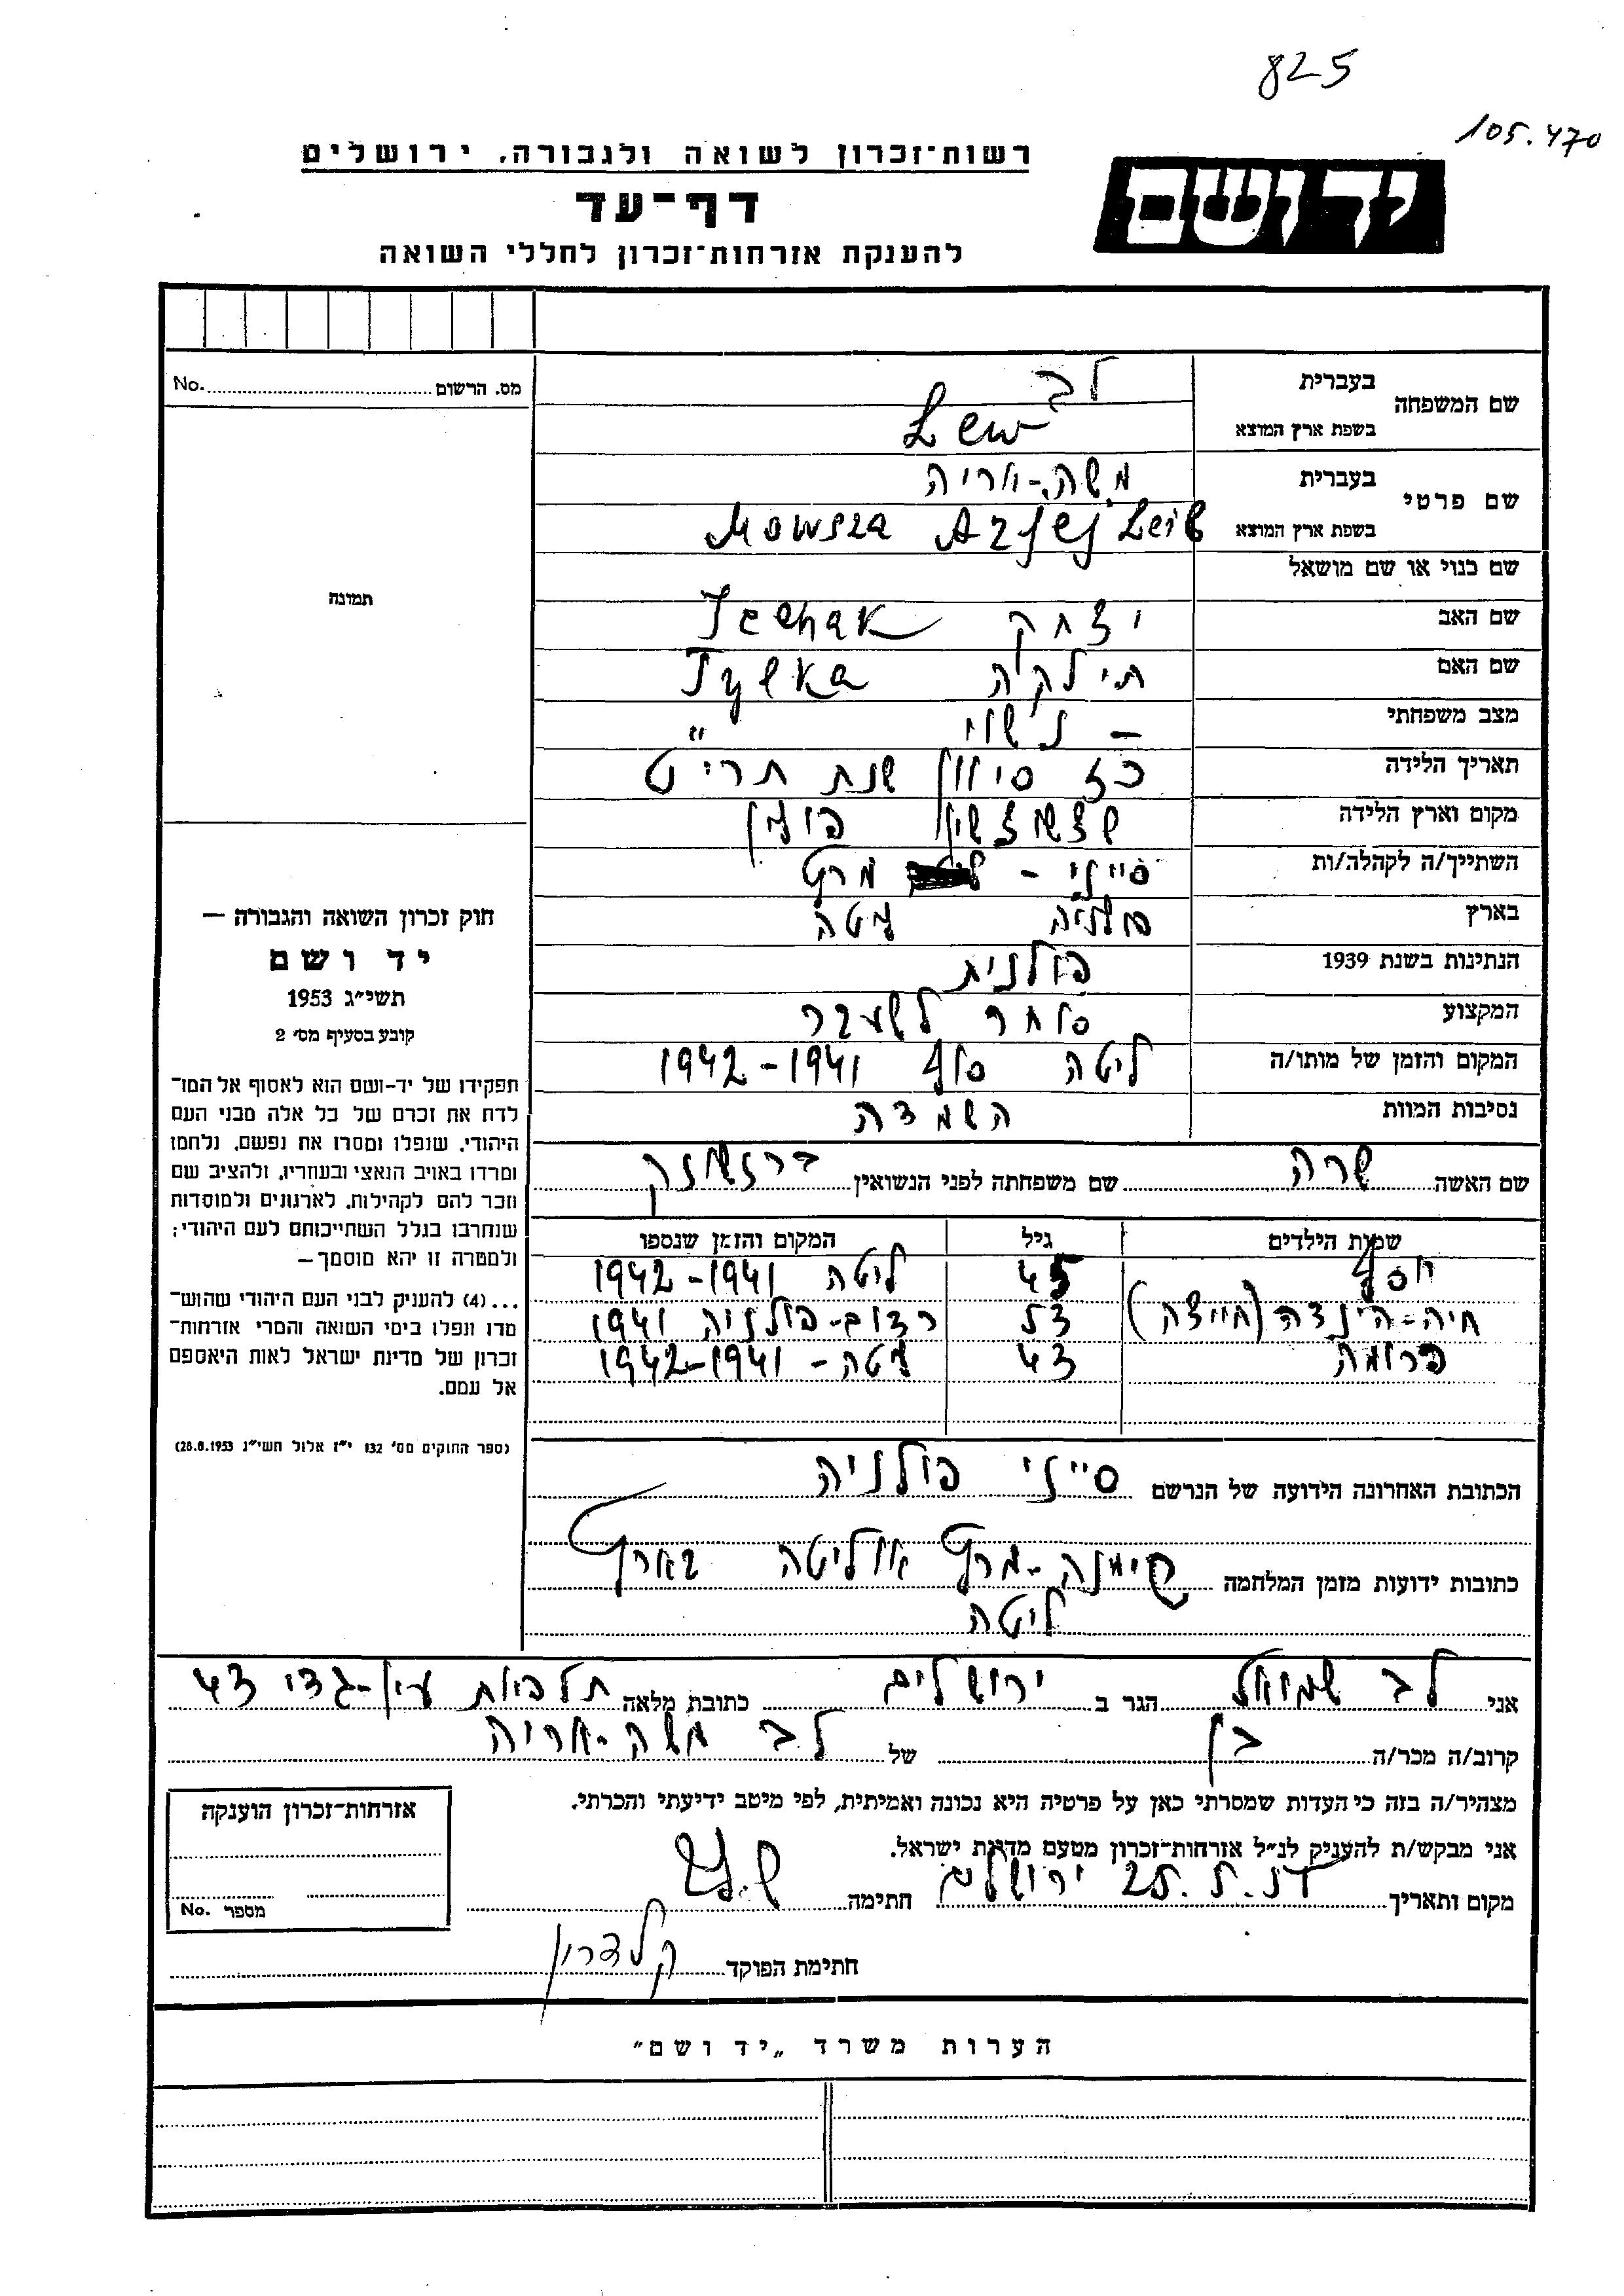 825
105.470
רשות-זכרון לשואה ולגבורה, ירושלים
יד ושם
דף-עד
להענקת אזרחות-זכרון לחללי השואה
מס. הרשום No.
שם המשפחה בעברית לב
בשפת ארץ המוצא Lew
שם פרטי בעברית משה-אריה
בשפת ארץ המוצא Mowsza Arjej Leib
שם כנוי או שם מושאל
תמונה
שם האב יצחק Icchak
שם האם תילקה Tylka
מצב משפחתי - נישוי
תאריך הלידה כז סיוון שנת תרי"ט
מקום וארץ הלידה פולין
השתייך/ה לקהלה/ות סייני -
בארץ פולניה ליטה
הנתינות בשנת 1939 פולנית
המקצוע סוחר לשעבר
המקום והזמן של מותו/ה ליטה סוף 1941-1942
נסיבות המוות השמדה
שם האשה שרה שם משפחתה לפני הנשואין
שמות הילדים גיל המקום והזמן שנספו
יוסף 45 ליטה 1941-1942
חיה-הינדה (חיידה) 53 רדום-פולניה 1941
פרומה 43 ליטה - 1941-1942
חוק זכרון השואה והגבורה —
יד ושם
תשי"ג 1953
קובע בסעיף מס' 2
תפקידו של יד-ושם הוא לאסוף אל המו־
לדת את זכרם של כל אלה מבני העם
היהודי, שנפלו ומסרו את נפשם, נלחמו
ומרדו באויב הנאצי ובעוזריו, ולהציב שם
וזכר להם לקהילות, לארגונים ולמוסדות
שנחרבו בגלל השתייכותם לעם היהודי;
ולמטרה זו יהא מוסמך—
...(4) להעניק לבני העם היהודי שהוש־
מדו ונפלו בימי השואה והמרי אזרחות־
זכרון של מדינת ישראל לאות היאספם
אל עמם.
(ספר החוקים מס' 132 י"ז אלול תשי"ג 28.8.1953)
הכתובת האחרונה הידועה של הנרשם סייני פולניה
כתובות ידועות מזמן המלחמה סימנה-מרק אוליטה בארץ
ליטה
אני לב שמואל הגר ב ירושלים כתובת מלאה תלפיות עין-גדי 43
קרוב/ה מכר/ה בן של לב משה-אריה
מצהיר/ה בזה כי העדות שמסרתי כאן על פרטיה היא נכונה ואמיתית, לפי מיטב ידיעתי והכרתי.
אני מבקש/ת להעניק לנ"ל אזרחות-זכרון מטעם מדינת ישראל.
מקום ותאריך ירושלים חתימה ש. לב
חתימת הפוקד קלדרון
אזרחות-זכרון הוענקה
מספר No.
הערות משרד „יד ושם"